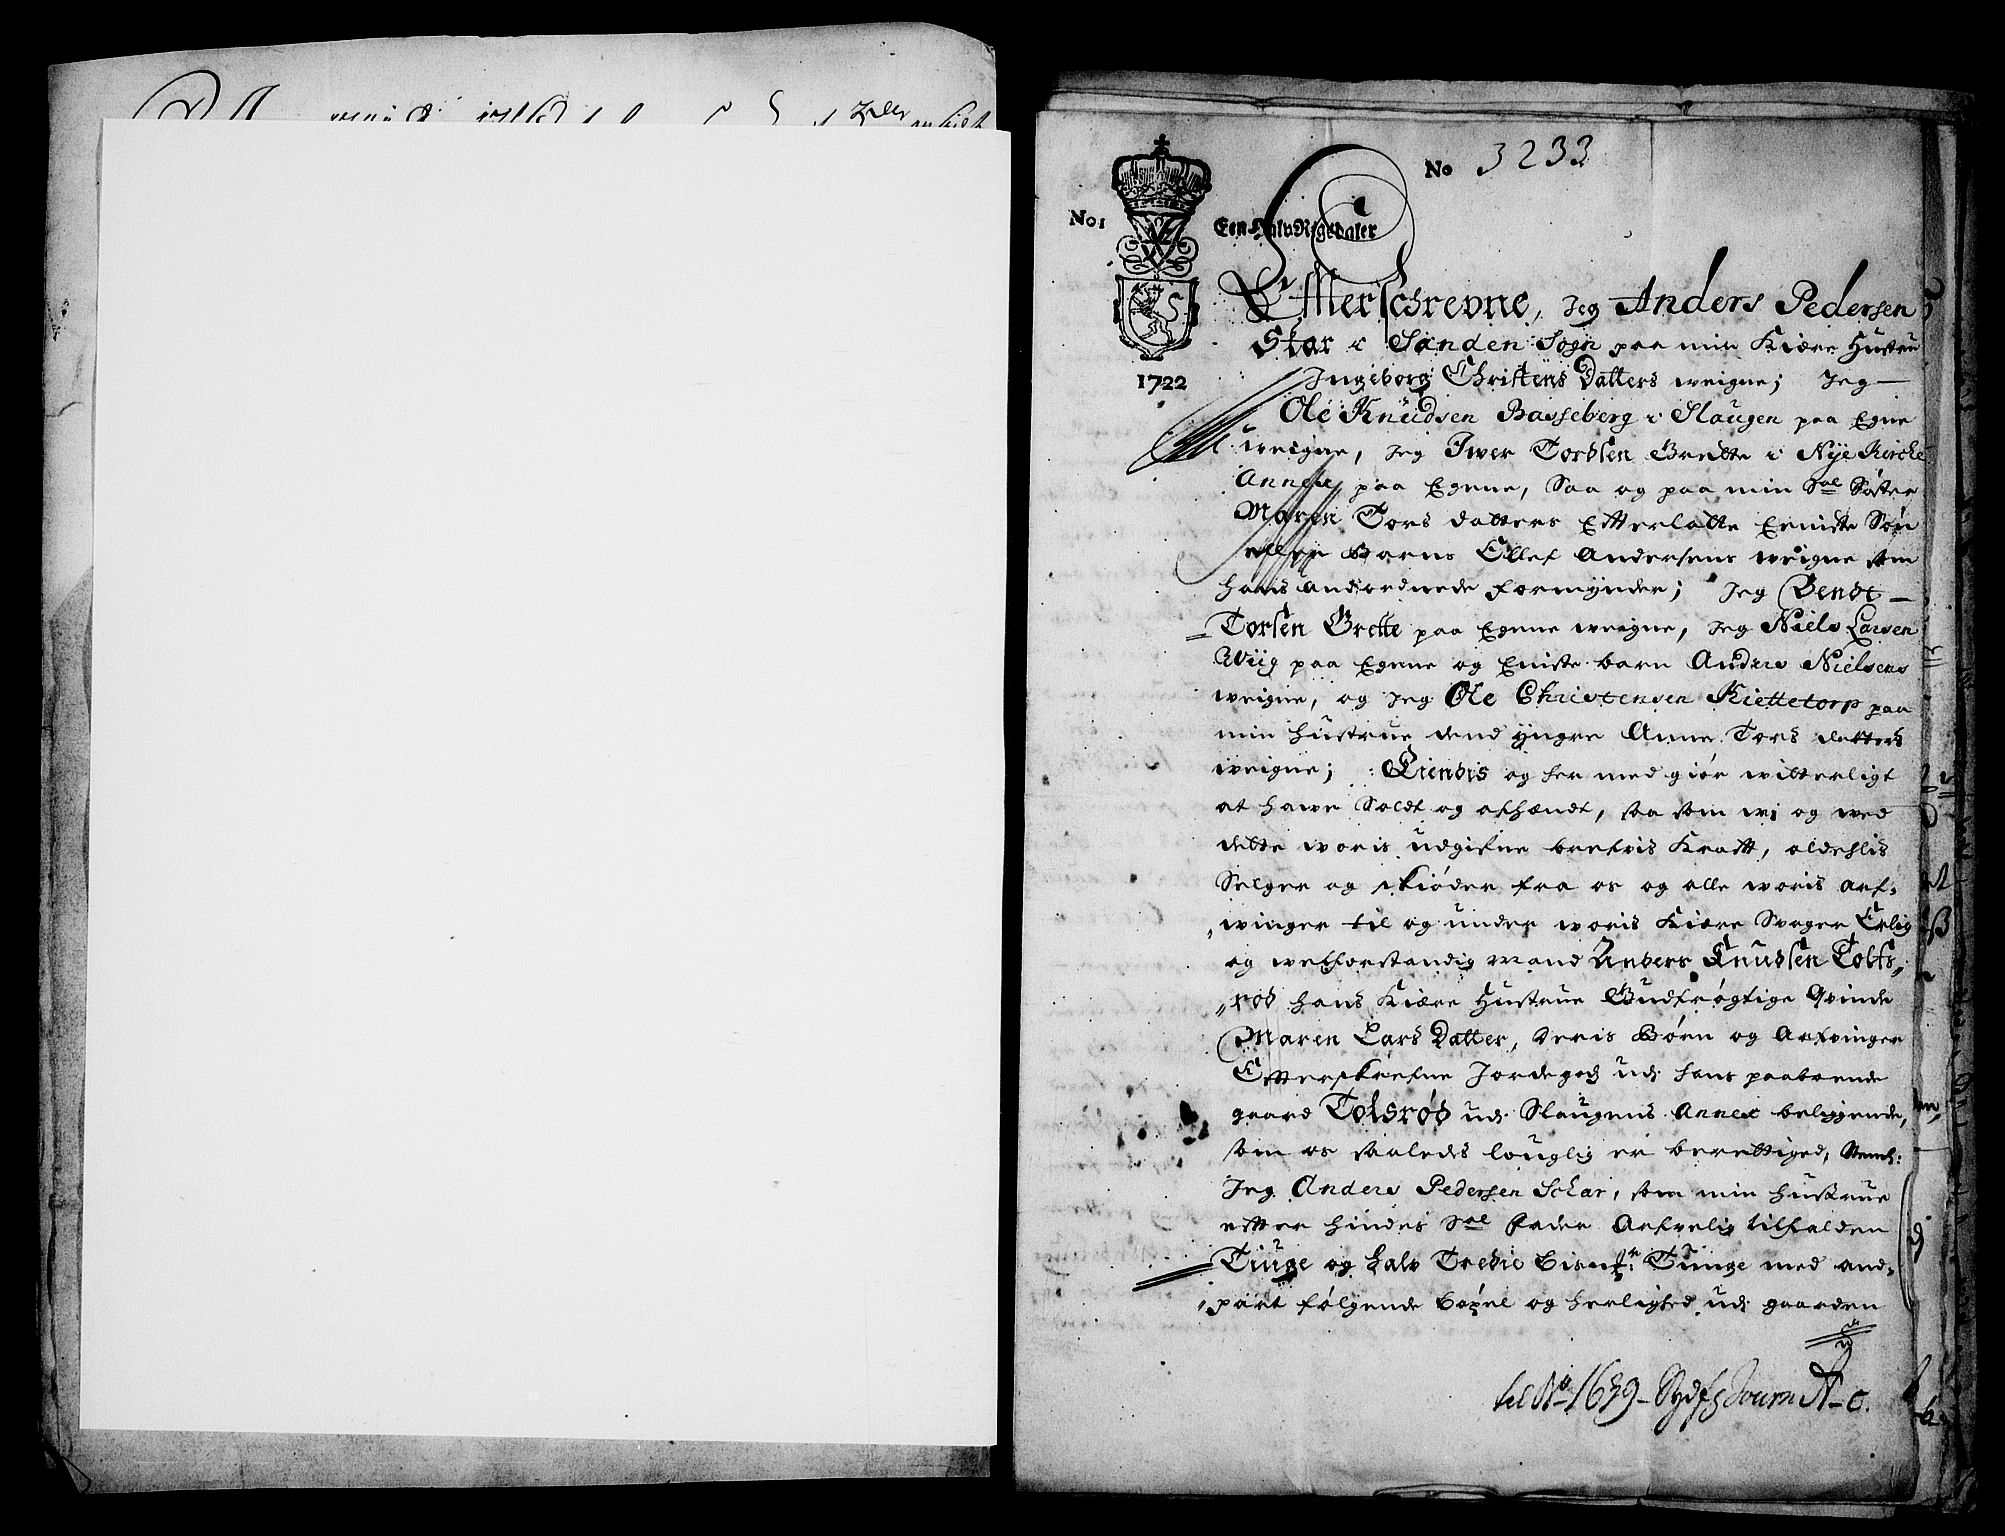 No 3233
No 1
Een Halv Rigsdaler
1722
Efterschrevne, Jeg Anders Pedersen
Skar i Sanden Sogn paa min Kiære Hustru
Ingeborg Christens Datters weigne; Jeg
Ole Knüdsen Basseberg i Slaugen paa Egne
weigne, Jeg Iwer Tordsen Gredte i Nye Kircke
Annex paa Egene, Saa og paa min Sal Søster
Maren Tors datters Efterlatte Eniste Søn
eller Barns Ellef Andersens weigne som
hans anordnede formynder; Jeg Bendt
Torsen Grette paa Egene weigne, Jeg Niels Larsen
Wiig paa Egene og Eniste barn Anders Nielsens
weigne, og Jeg Ole Christensen Kiettetorp paa
min hustrue dend yngre Anne Tors datters
weigne; Kiendis og her med giør witterligt
at hawe Soldt og afhændt, saa som wi og wed
dette woris udgifne brefvis Krafft, aldehlis
Selger og skiøder fra os og alle woris arf-
winger til og under woris Kiære Svoger Erlig
og welforstandig mand Anders Knudsen Tolfs
rød hans Kiære Hustrue Gudfrøgtige Qvinde
Maren Lars Datter, deris Børn og Arfvinger
Efterskrefne Jordegods udi hans paaboende
gaard Tolsrød udi Slaugens Annex beligende,
som os saaledis louglig er berettiged, Nemb:
Jeg Anders Pedersen Schar, som min hustrue
efter hindes Sal Fader Arfvelig tilfalden
Tiuge og halv Tredie Bismr: Tünge med and-
part følgende bøxel og herlighed udi gaarden
til No 1639 - Sydfs Journ A - o.